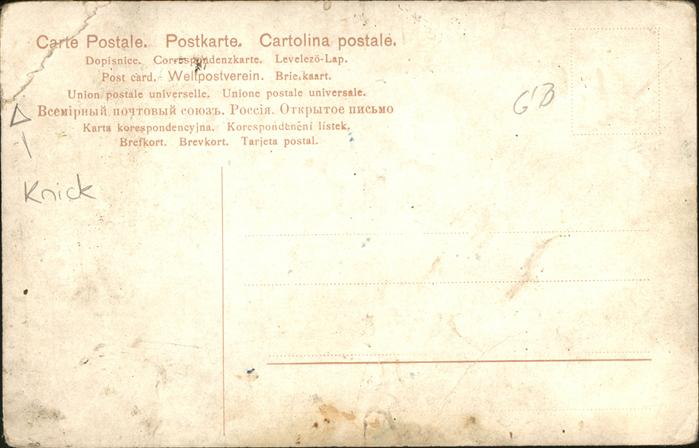 Carte Postale. Postkarte. Cartolina postale.
Dopisnice. Correspondenzkarte. Levelező-Lap.
Post card. Weltpostverein. Briefkaart.
Union postale universelle. Unione postale universale.
Всемірный почтовый союзъ. Россія. Открытое письмо
Karta korespondencyjna. Korespondenční lístek.
Brefkort. Brevkort. Tarjeta postal.
GB
Knick